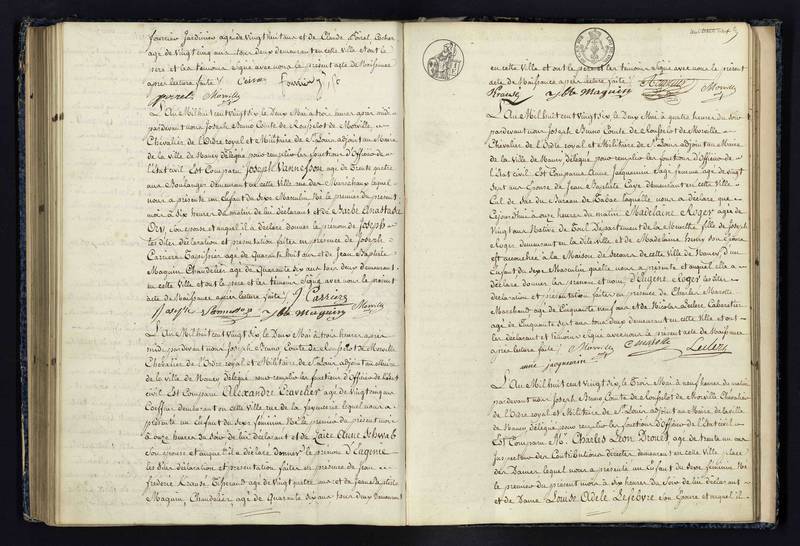 fournier Jardinier agé de vingthuit ans et de Claude Poirel
agé de vingt cinq ans tous deux demeurant en cette Ville et ont le
pere et les témoins Signé avec nous le présent acte de Naissance
après lecture faite
poirel Morville
L'An Mil huit cent Vingt Six, le Deux Mai à trois heures après midi
pardevant nous Joseph Bruno Comte de Rousselot de Morville,
Chevalier de l'Ordre royal et Militaire de St Louis adjoint au Maire
de la ville de Nancy délégué pour remplir les fonctions d'Officier de
l'Etat civil. Est Comparu Joseph Vannesson agé de Trente quatre
ans Boulanger demeurant en cette Ville rue des Maréchaux lequel
nous a présenté un Enfant du Sexe Masculin Né le premier du présent
mois à dix heures du matin de lui déclarant et de Barbe Anastasie
Ory Son epouse et auquel il a déclaré donner le prénom de Joseph
les dites déclaration et présentation faites en présence de Joseph
Carriere Tapissier agé de Quarante huit ans et de Jean Baptiste
Maquin Chandelier agé de Quarante Six ans tous deux demeurant
en cette Ville et ont le pere et les témoins Signé avec nous le présent
acte de Naissance après lecture faite J Carriere
Joseph Vannesson jbte maquin Morville
L'An Mil huit cent Vingt Six, le Deux Mai à trois heures après
midi pardevant nous Joseph Bruno Comte de Rousselot de Morville
Chevalier de l'Ordre royal et Militaire de St Louis adjoint au Maire
de la ville de Nancy délégué pour remplir les fonctions d'Officier de l'état
civil. Est Comparu Alexandre Cravelier agé de vingt cinq ans
Coiffeur demeurant en cette Ville rue de la fayencerie lequel nous a
présenté un Enfant du Sexe féminin Né le premier du présent mois
à onze heures du Soir de lui déclarant et de Zaïre Anne Schwab
Son epouse et auquel il a déclaré donner le prénom d'Eugenie
les dites déclaration et présentation faites en présence de Jean
frederic Krausé Tisserand agé de Vingt quatre ans et de Jean Baptiste
Maquin, Chandelier, agé de Quarante Six ans tous deux demeurant
en cette Ville et ont le pere et les témoins Signé avec nous le présent
acte de Naissance après lecture faite
Krausé jbte maquin Morville
L'An Mil huit cent vingt Six, le Deux Mai à quatre heures du Soir
pardevant nous Joseph Bruno Comte de Rousselot de Morville
Chevalier de l'Ordre royal et Militaire de St Louis adjoint au Maire
de la Ville de Nancy délégué pour remplir les fonctions d'Officier de
l'état civil. Est Comparue Anne Jacquemin Sage femme agée de vingt
Sept ans Epouse de Jean Baptiste Caye demeurant en cette Ville
Cul de Sac du Bureau de Tabac laquelle nous a déclaré que
Cejourd'hui à onze heures du matin Madelaine Roger agée de
Vingt ans Native de Toul Département de la Meurthe fille de Joseph
Roger demeurant en la dite Ville et de Madelaine
est accouchée à la Maison de Secours de cette Ville de Nancy, d'un
Enfant du Sexe Masculin qu'elle nous a présenté et auquel elle a
déclaré donner les prénom et nom d'Eugene Roger les dites
déclaration et présentation faites en présence de Charles Marotte
Marchand agé de Cinquante neuf ans et de Nicolas Leclerc Cabaretier
agé de Cinquante ans tous deux demeurant en cette Ville et ont
les déclarant et témoins Signé avec nous le présent acte de Naissance
après lecture faite Morville C marotte
anne jacquemin Leclerc
L'An Mil huit cent Vingt Six, le Trois Mai à neuf heures du matin
pardevant nous Joseph Bruno Comte de Rousselot de Morville Chevalier
de l'Ordre royal et Militaire de St Louis adjoint au Maire de la ville
de Nancy, délégué pour remplir les fonctions d'Officier de l'état civil.
Est Comparu Mr Charles Leon Drouet agé de trente un ans
Inspecteur des Contributions directes demeurant en cette Ville place
des Dames lequel nous a présenté un Enfant du Sexe féminin Né
le premier du présent mois à dix heures du Soir de lui déclarant
et de Dame Louise Adele Lefebvre Son Epouse et auquel il